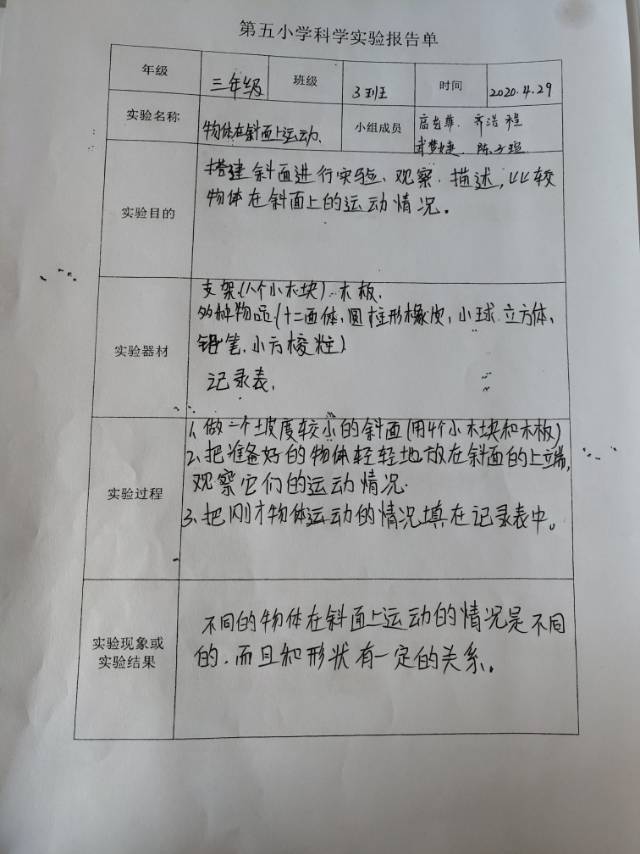 第五小学科学实验报告单
年级 三年级 班级 3班 时间 2020.4.29
实验名称 物体在斜面上运动. 小组成员
陈
实验目的
搭建斜面进行实验、观察.描述,比较
物体在斜面上的运动情况。
实验器材
支架(八个小木块).木板.
多种物品(十二面体,圆柱形橡皮,小球.立方体、
铅笔.小方棱柱)
记录表.
实验过程
1、做一个坡度较小的斜面(用4个小木块和木板)
2、把准备好的物体轻轻地放在斜面的上端,
观察它们的运动情况.
3、把刚才物体运动的情况填在记录表中。
实验现象或
实验结果
不同的物体在斜面上运动的情况是不同
的.而且和形状有一定的关系。